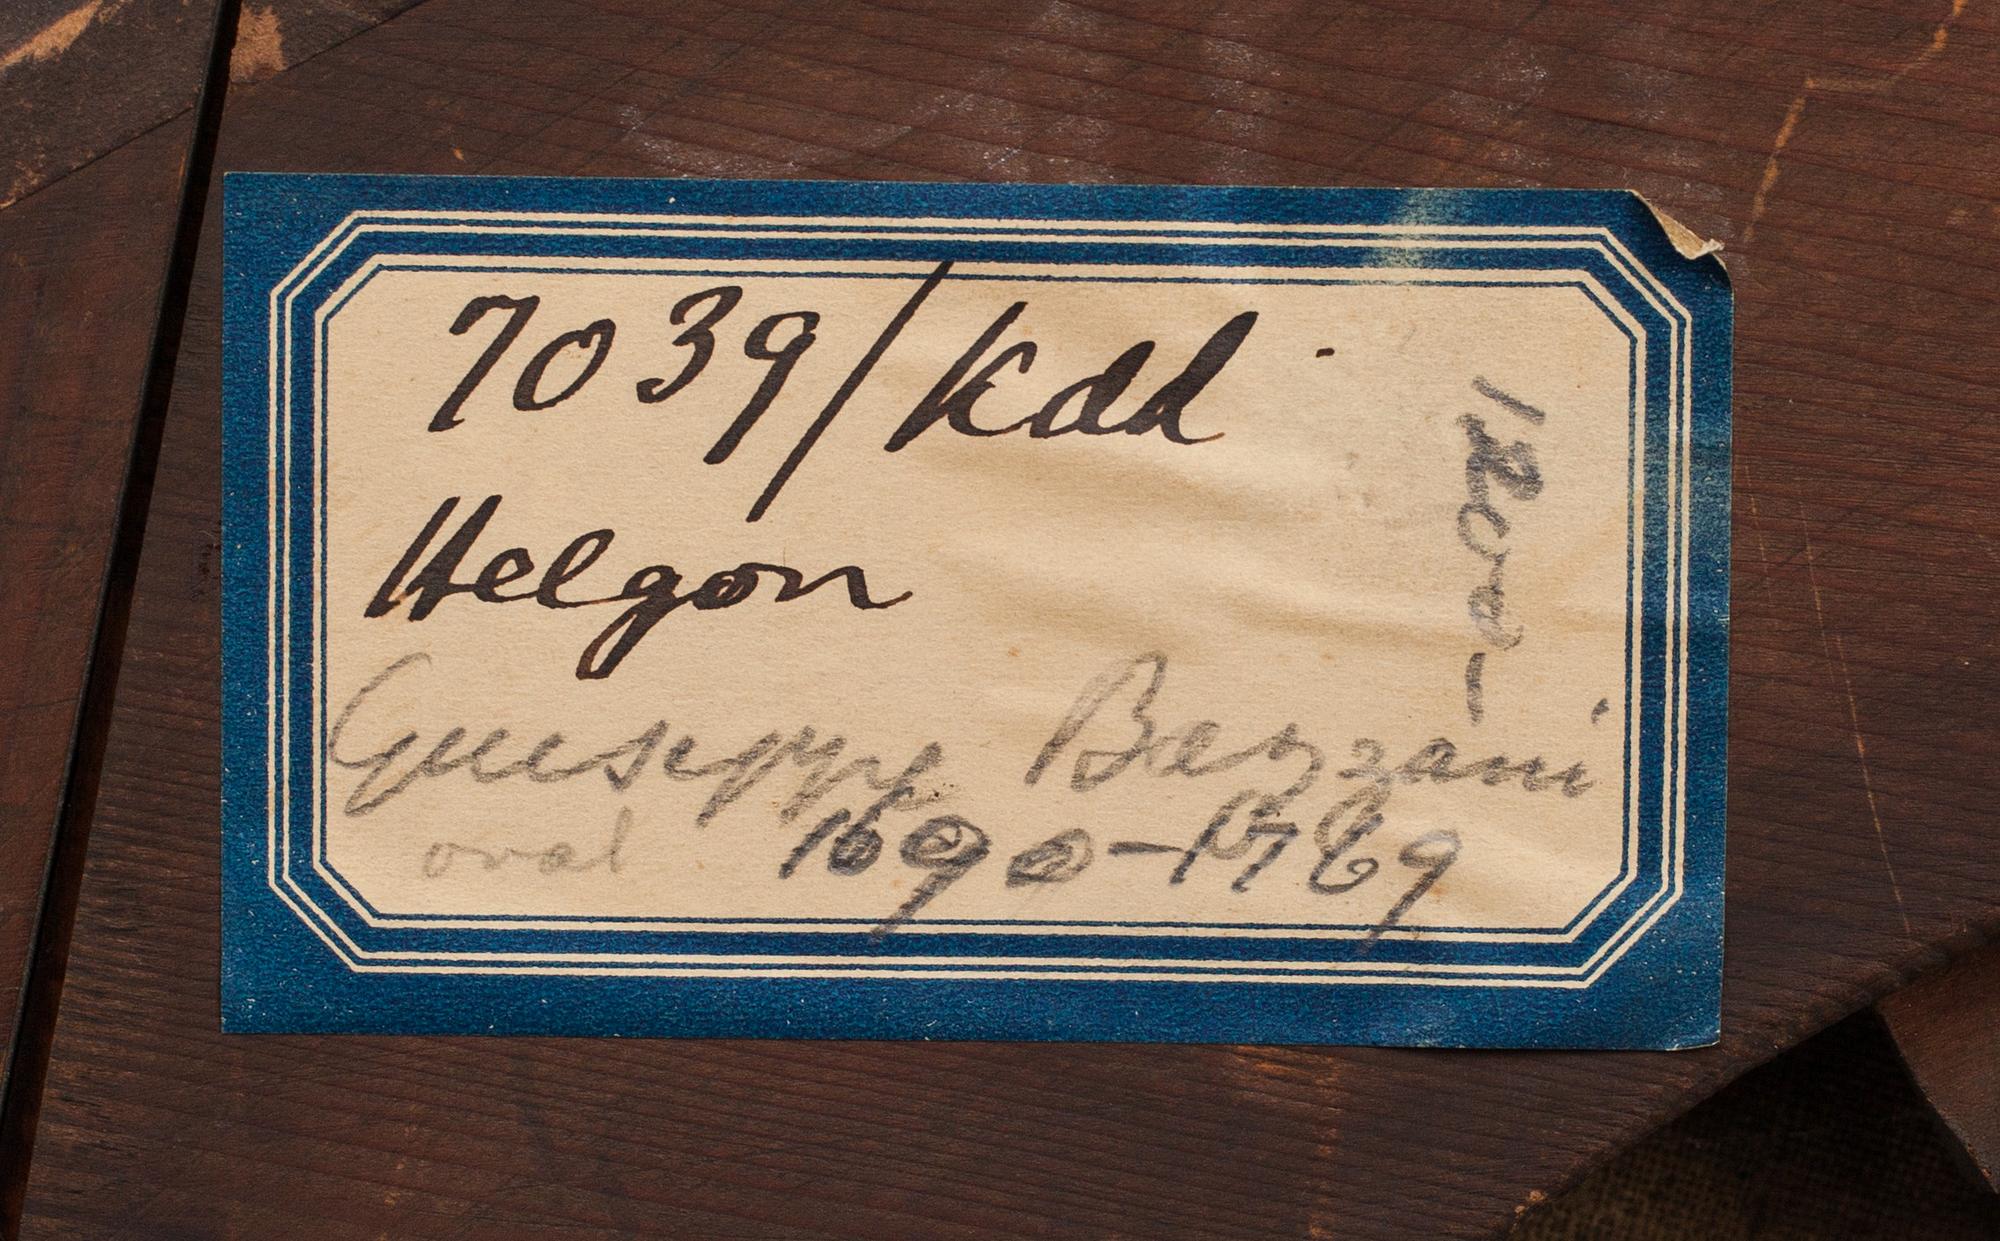 7039/Kdd
Helgon
Giuseppe Bazzani
oval 1690-1769
1200-